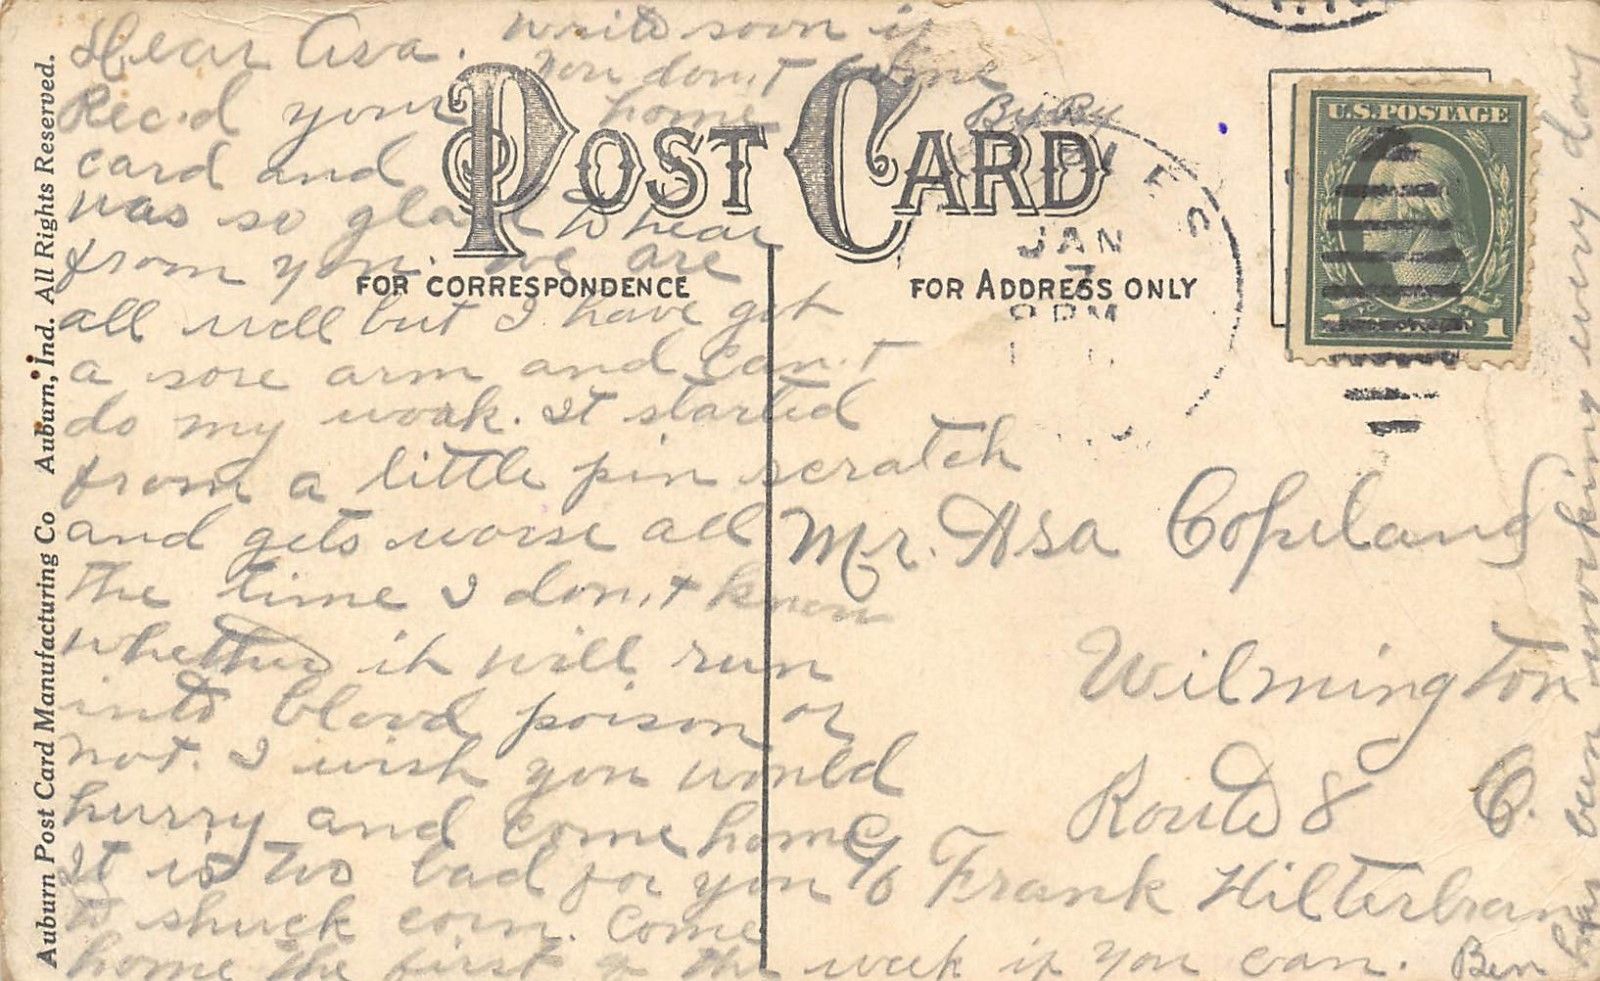 Dear Asa.
Rec.d your
card and
was so glad to hear
from you. we are
all well but I have got
a sore arm and can.t
do my work. It started
from a little pin scratch
and gets worse all
the time I don,t know
whether it will run
into blood poison or
not. I wish you would
hurry and come home
It is too bad for you
to shuck corn. Come
home the first of the week if you can. Ben
has been working every day
write soon if
you don,t come
home
By By
POST CARD
FOR CORRESPONDENCE
FOR ADDRESS ONLY
JAN
7
8 PM
U.S. POSTAGE
1 1
Mr. Asa Copeland
Wilmington
Route 8 O.
c/o Frank Hilterbran
Auburn Post Card Manufacturing Co Auburn, Ind. All Rights Reserved.